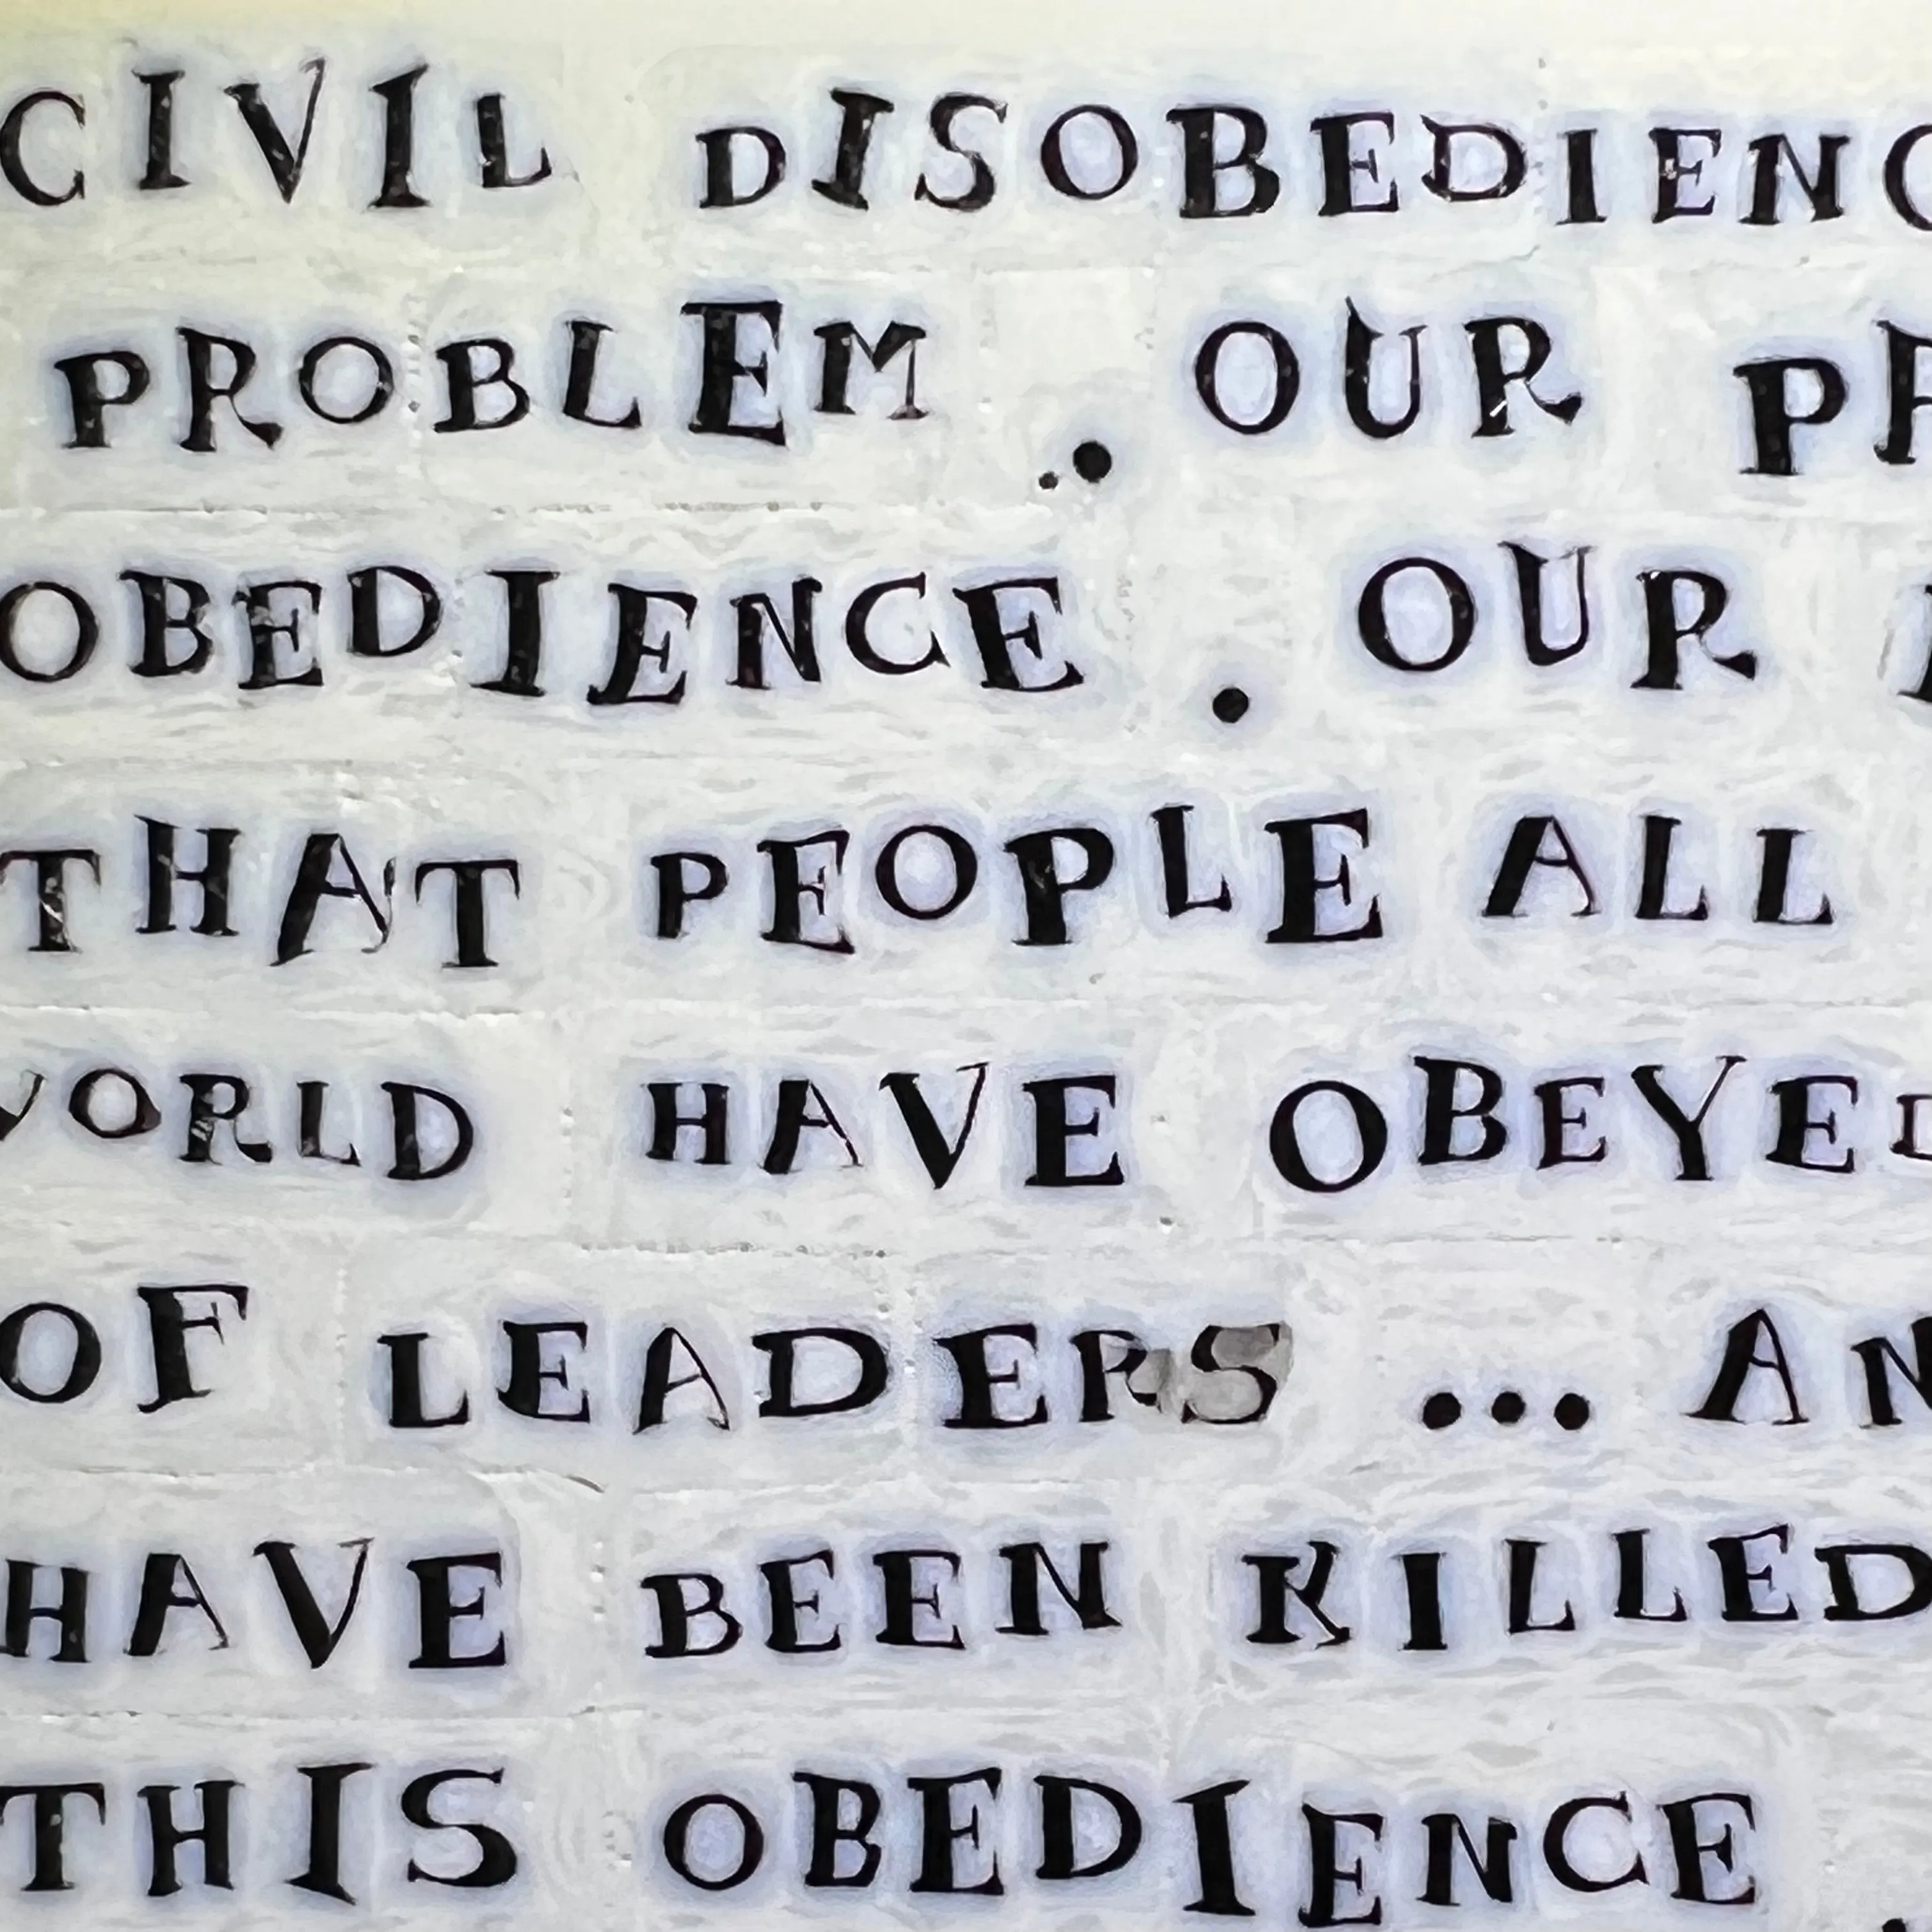 CIVIL DISOBEDIENC
PROBLEM . OUR
OBEDIENCE . OUR
THAT PEOPLE ALL
WORLD HAVE OBEYED
OF LEADERS ... AN
HAVE BEEN KILLED
THIS OBEDIENCE .